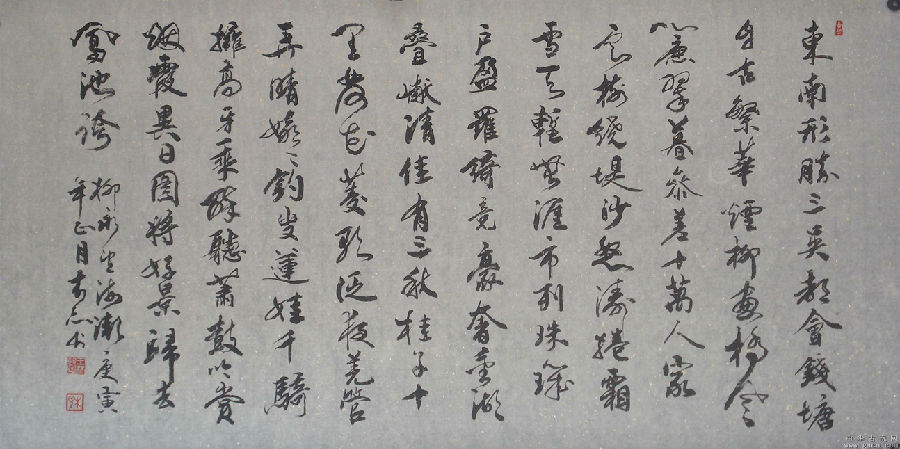 東南形勝三吳都會錢塘
自古繁華煙柳畫橋風
簾翠暮參差十萬人家
雲樹繞堤沙怒濤捲霜
雪天塹無涯市列珠璣
戶盈羅綺竟豪奢重湖
疊巘清佳有三秋桂子十
里荷花菱歌泛夜羌管
弄晴嬉〻釣叟蓮娃千騎
擁高牙乘醉聽蕭鼓吟賞
烟霞異日圖將好景歸去
鳳池誇
柳永望海潮庚寅
年正月志书
中华古玩网